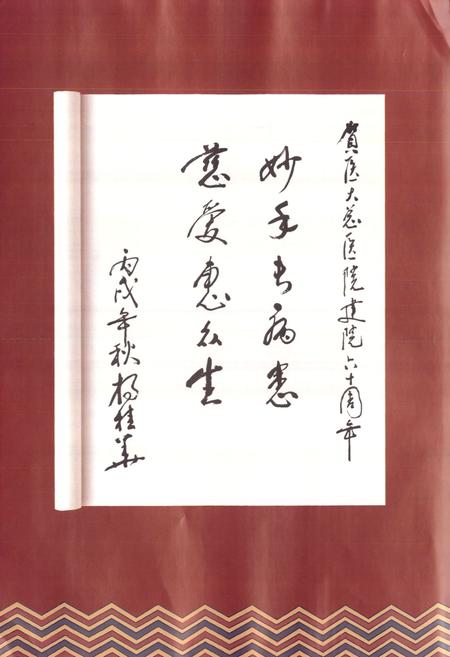 贺医大总医院建院六十周年
妙手去病患
慈爱惠众生
丙戌年秋杨桂华